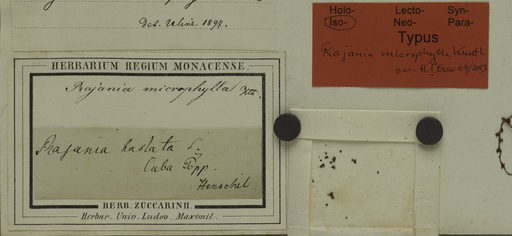 Det. Uline 1897.
HERBARIUM REGIUM MONACENSE.
Rajania microphylla Kth.
Rajania hastata L.
Cuba Pöpp.
Henschel
HERB. ZUCCARINII.
Herbar. Univ. Ludov. Maximil.
Holo- Lecto- Syn-
Iso- Neo- Para-
Typus
Rajania microphylla Kunth
scr. H.J. Esser 04/2013